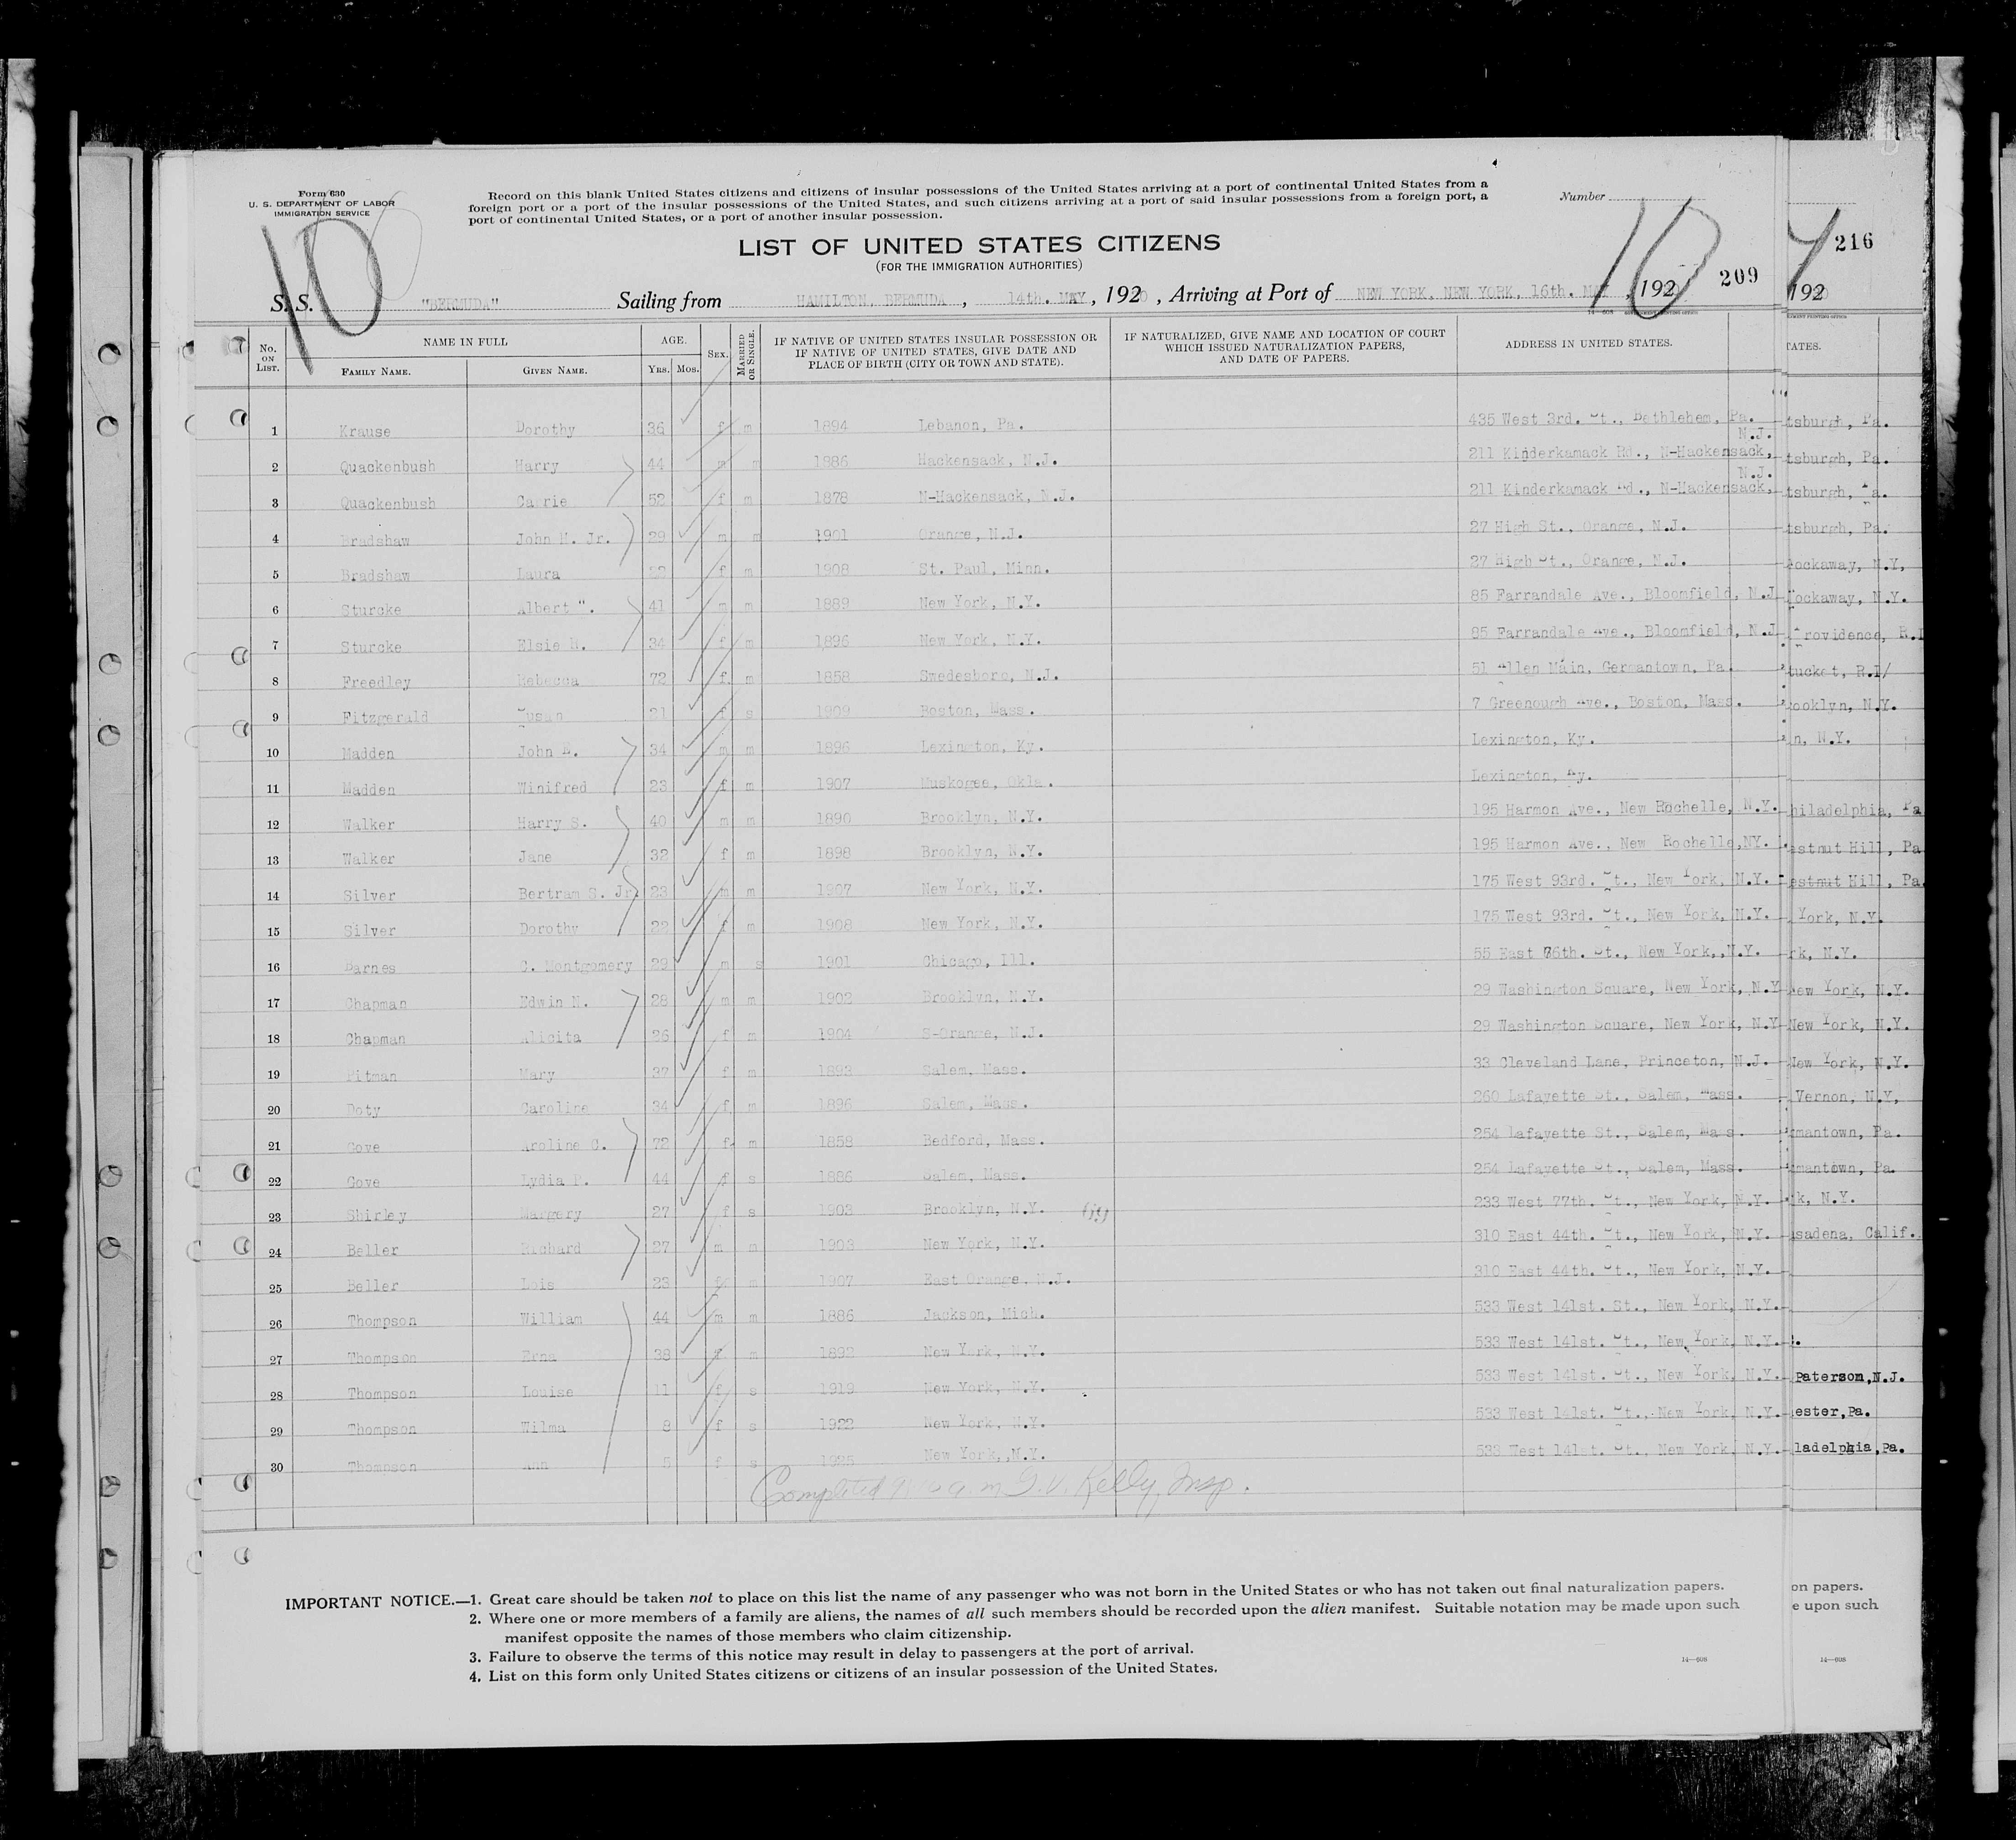 Form 630
U. S. DEPARTMENT OF LABOR
IMMIGRATION SERVICE
Record on this blank United States citizens and citizens of insular possessions of the United States arriving at a port of continental United States from a
foreign port or a port of the insular possessions of the United States, and such citizens arriving at a port of said insular possessions from a foreign port, a
port of continental United States, or a port of another insular possession.
Number
10
10
LIST OF UNITED STATES CITIZENS
(FOR THE IMMIGRATION AUTHORITIES)
209
216
S. S. "BERMUDA" Sailing from HAMILTON, BERMUDA, 14th. MAY, 1920, Arriving at Port of NEW YORK, NEW YORK, 16th. MAY, 192
192
No. ON LIST. NAME IN FULL AGE. SEX. MARRIED OR SINGLE. IF NATIVE OF UNITED STATES INSULAR POSSESSION OR IF NATIVE OF UNITED STATES, GIVE DATE AND PLACE OF BIRTH (CITY OR TOWN AND STATE). IF NATURALIZED, GIVE NAME AND LOCATION OF COURT WHICH ISSUED NATURALIZATION PAPERS, AND DATE OF PAPERS. ADDRESS IN UNITED STATES. TATES.
FAMILY NAME. GIVEN NAME. YRS. MOS.
1 Krause Dorothy 36 f m 1894 Lebanon, Pa. 435 West 3rd. St., Bethlehem, Pa. tsburgh, Pa.
2 Quackenbush Harry 44 m m 1886 Hackensack, N.J. 211 Kinderkamack Rd., N-Hackensack, N.J. tsburgh, Pa.
3 Quackenbush Carrie 52 f m 1878 N-Hackensack, N.J. 211 Kinderkamack Rd., N-Hackensack, N.J. tsburgh, Pa.
4 Bradshaw John H. Jr. 29 m m 1901 Orange, N.J. 27 High St., Orange, N.J. tsburgh, Pa.
5 Bradshaw Laura 22 f m 1908 St. Paul, Minn. 27 High St., Orange, N.J. ockaway, N.Y,
6 Sturcke Albert 41 m m 1889 New York, N.Y. 85 Farrandale Ave., Bloomfield, N.J ockaway, N.Y.
7 Sturcke Elsie H. 34 f m 1896 New York, N.Y. 85 Farrandale Ave., Bloomfield, N.J Providence, R.I
8 Freedley Rebecca 72 f m 1858 Swedesboro, N.J. 51 Allen Main, Germantown, Pa. tucket, R.I/
9 Fitzgerald Susan 21 f s 1909 Boston, Mass. 7 Greenough Ave., Boston, Mass. ooklyn, N.Y.
10 Madden John E. 34 m m 1896 Lexington, Ky. Lexington, Ky. n, N.Y.
11 Madden Winifred 23 f m 1907 Muskogee, Okla. Lexington, Ky.
12 Walker Harry S. 40 m m 1890 Brooklyn, N.Y. 195 Harmon Ave., New Rochelle, N.Y. hiladelphia, Pa
13 Walker Jane 32 f m 1898 Brooklyn, N.Y. 195 Harmon Ave., New Rochelle,NY. estnut Hill, Pa
14 Silver Bertram S. Jr. 23 m m 1907 New York, N.Y. 175 West 93rd. St., New York, N.Y. estnut Hill, Pa.
15 Silver Dorothy 22 f m 1908 New York, N.Y. 175 West 93rd. St., New York, N.Y. York, N.Y.
16 Barnes C. Montgomery 29 m s 1901 Chicago, Ill. 55 East 76th. St., New York,,N.Y. rk, N.Y.
17 Chapman Edwin N. 28 m m 1902 Brooklyn, N.Y. 29 Washington Square, New York, N.Y New York, N.Y.
18 Chapman Alicita 26 f m 1904 S-Orange, N.J. 29 Washington Square, New York, N.Y New York, N.Y.
19 Pitman Mary 37 f m 1893 Salem, Mass. 33 Cleveland Lane, Princeton, N.J. New York, N.Y.
20 Doty Caroline 34 f m 1896 Salem, Mass. 260 Lafayette St., Salem, Mass. Vernon, N.Y,
21 Gove Aroline C. 72 f m 1858 Bedford, Mass. 254 Lafayette St., Salem, Mass. mantown, Pa.
22 Gove Lydia P. 44 f s 1886 Salem, Mass. 254 Lafayette St., Salem, Mass. mantown, Pa.
23 Shirley Margery 27 f s 1903 Brooklyn, N.Y. 233 West 77th. St., New York, N.Y. k, N.Y.
24 Beller Richard 27 m m 1903 New York, N.Y. 310 East 44th. St., New York, N.Y. sadena, Calif.
25 Beller Lois 23 f m 1907 East Orange, N.J. 310 East 44th. St., New York, N.Y.
26 Thompson William 44 m m 1886 Jackson, Mich. 533 West 141st. St., New York, N.Y.
27 Thompson Erna 38 f m 1892 New York, N.Y. 533 West 141st. St., New York, N.Y.
28 Thompson Louise 11 f s 1919 New York, N.Y. 533 West 141st. St., New York, N.Y. Paterson,N.J.
29 Thompson Wilma 8 f s 1922 New York, N.Y. 533 West 141st. St., New York, N.Y. ester,Pa.
30 Thompson Ann 5 f s 1925 New York,,N.Y. 533 West 141st. St., New York, N.Y. ladelphia,Pa.
Completed a.m. Kelly, Insp.
IMPORTANT NOTICE.—1. Great care should be taken not to place on this list the name of any passenger who was not born in the United States or who has not taken out final naturalization papers.
2. Where one or more members of a family are aliens, the names of all such members should be recorded upon the alien manifest. Suitable notation may be made upon such
manifest opposite the names of those members who claim citizenship.
3. Failure to observe the terms of this notice may result in delay to passengers at the port of arrival.
4. List on this form only United States citizens or citizens of an insular possession of the United States.
14—608
on papers.
e upon such
14—608